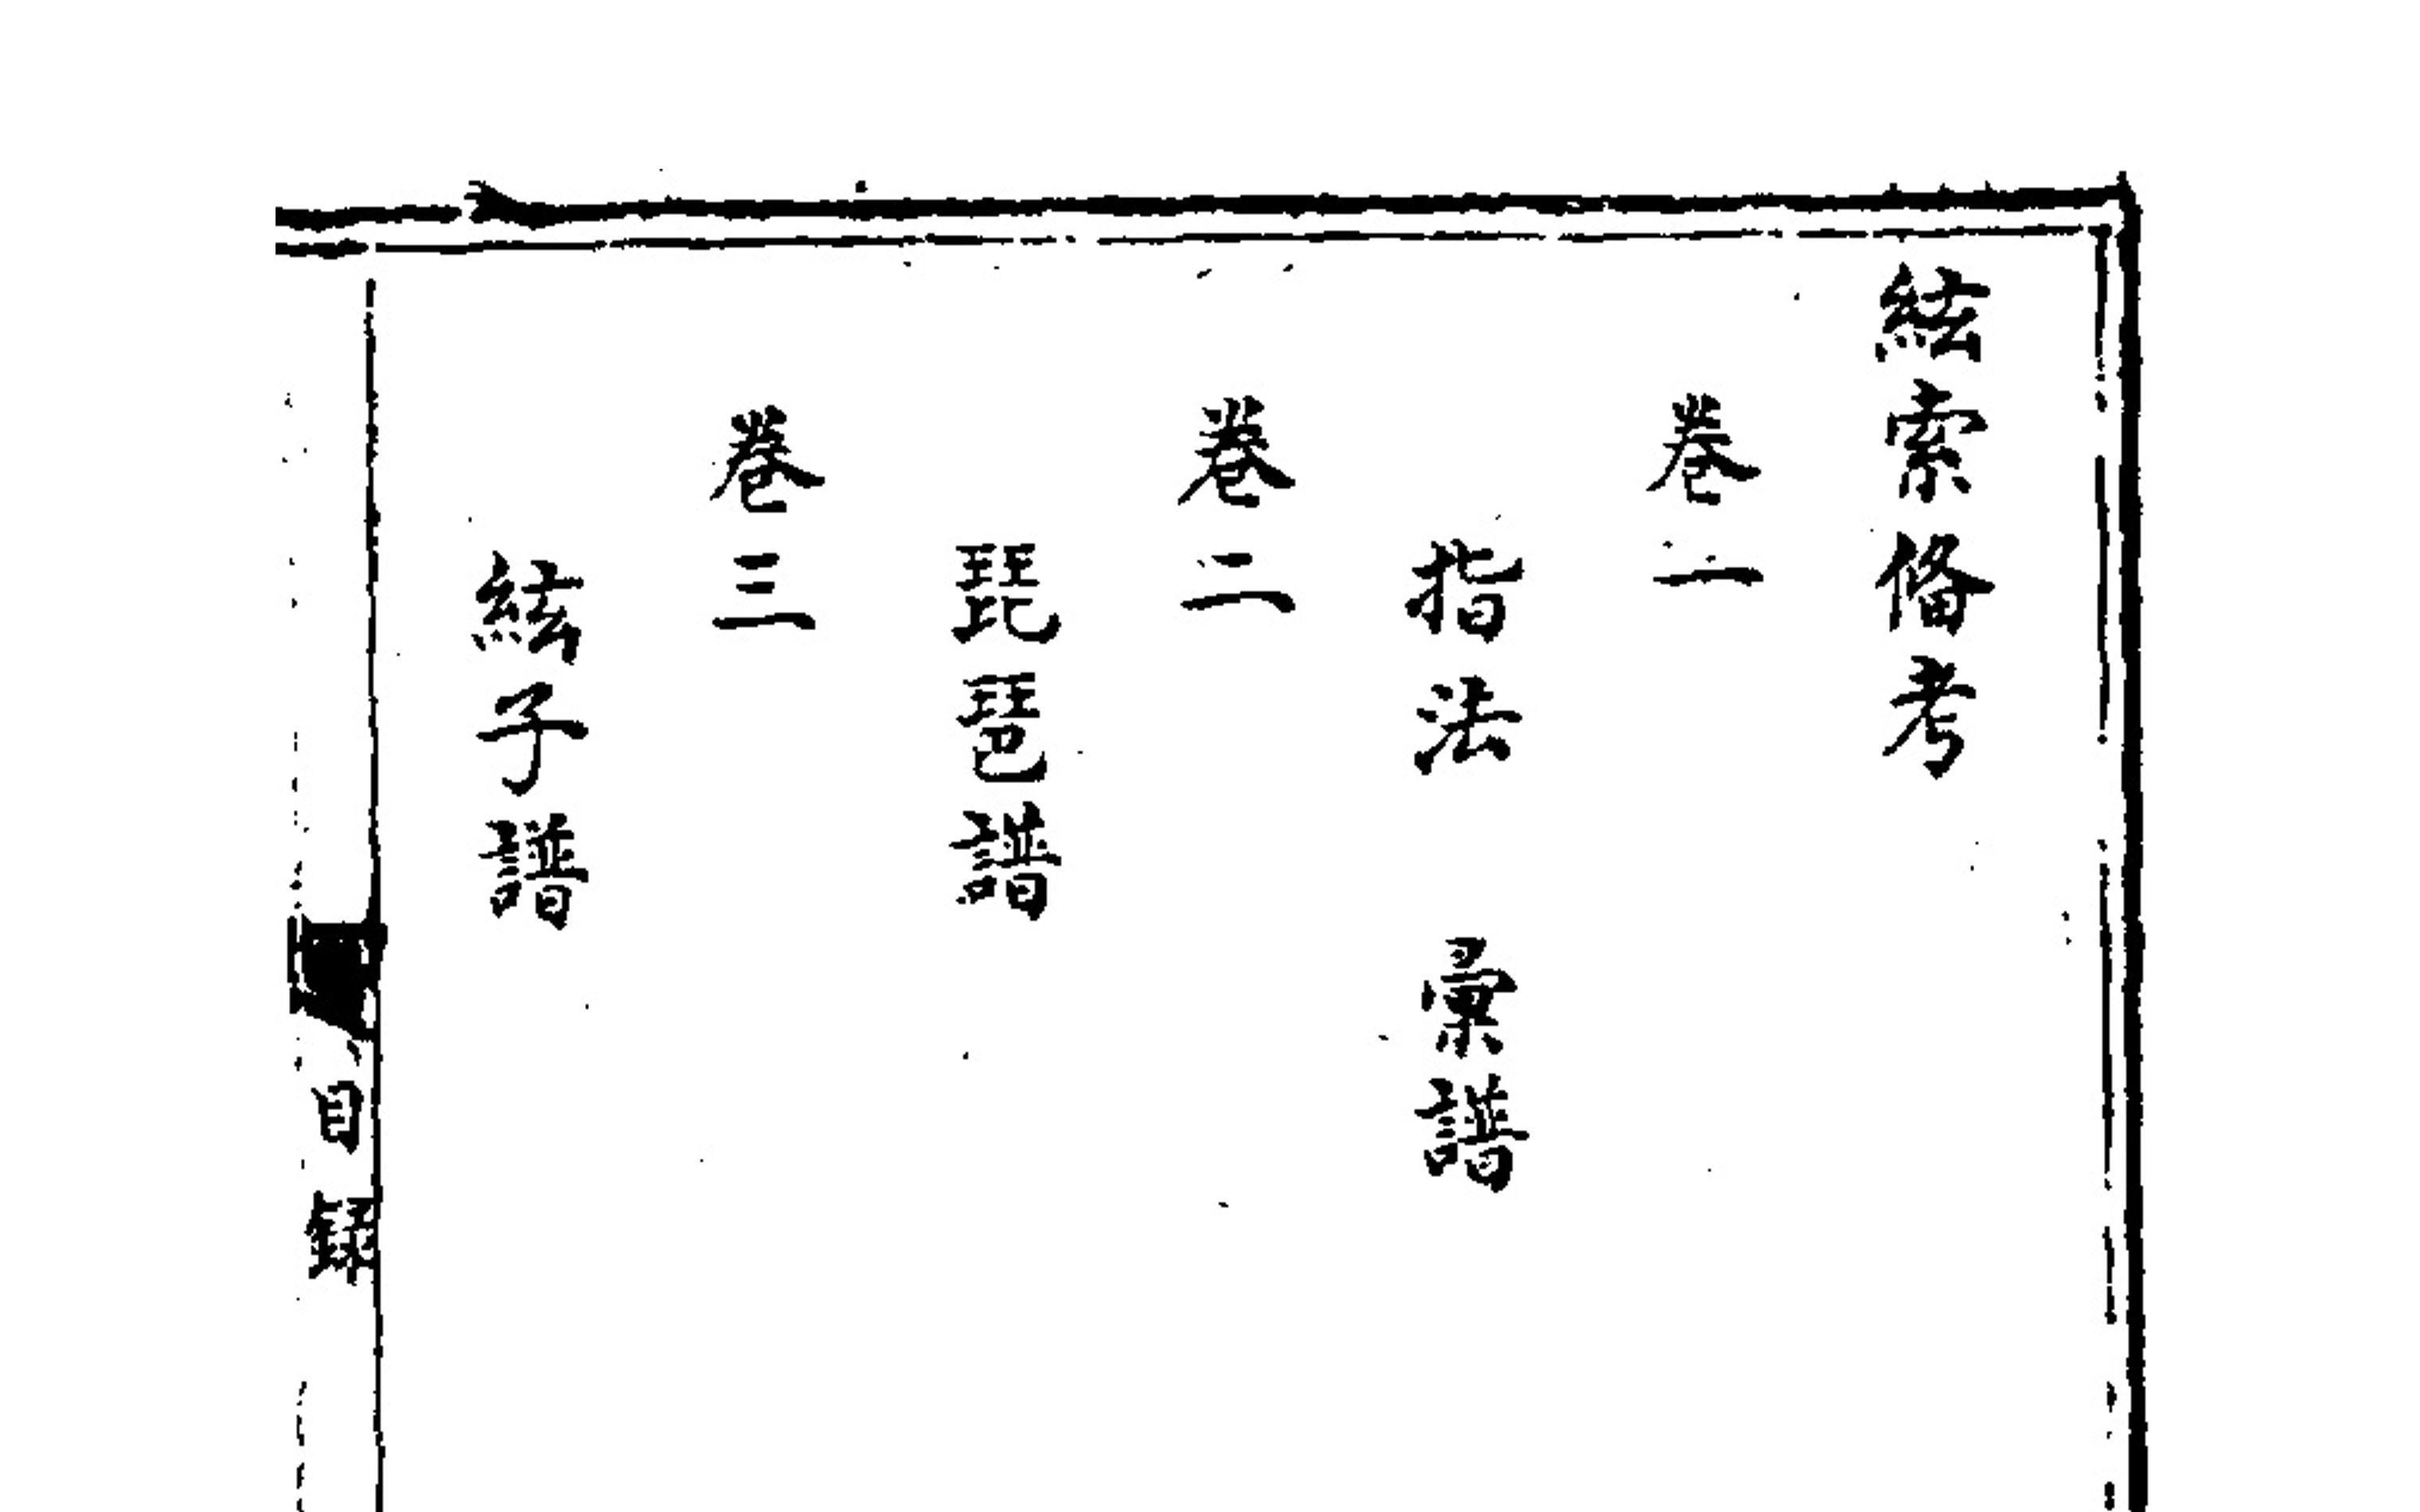 絃索俻考
卷一
指法 彚譜
卷二
琵琶譜
卷三
絃子譜
目錄